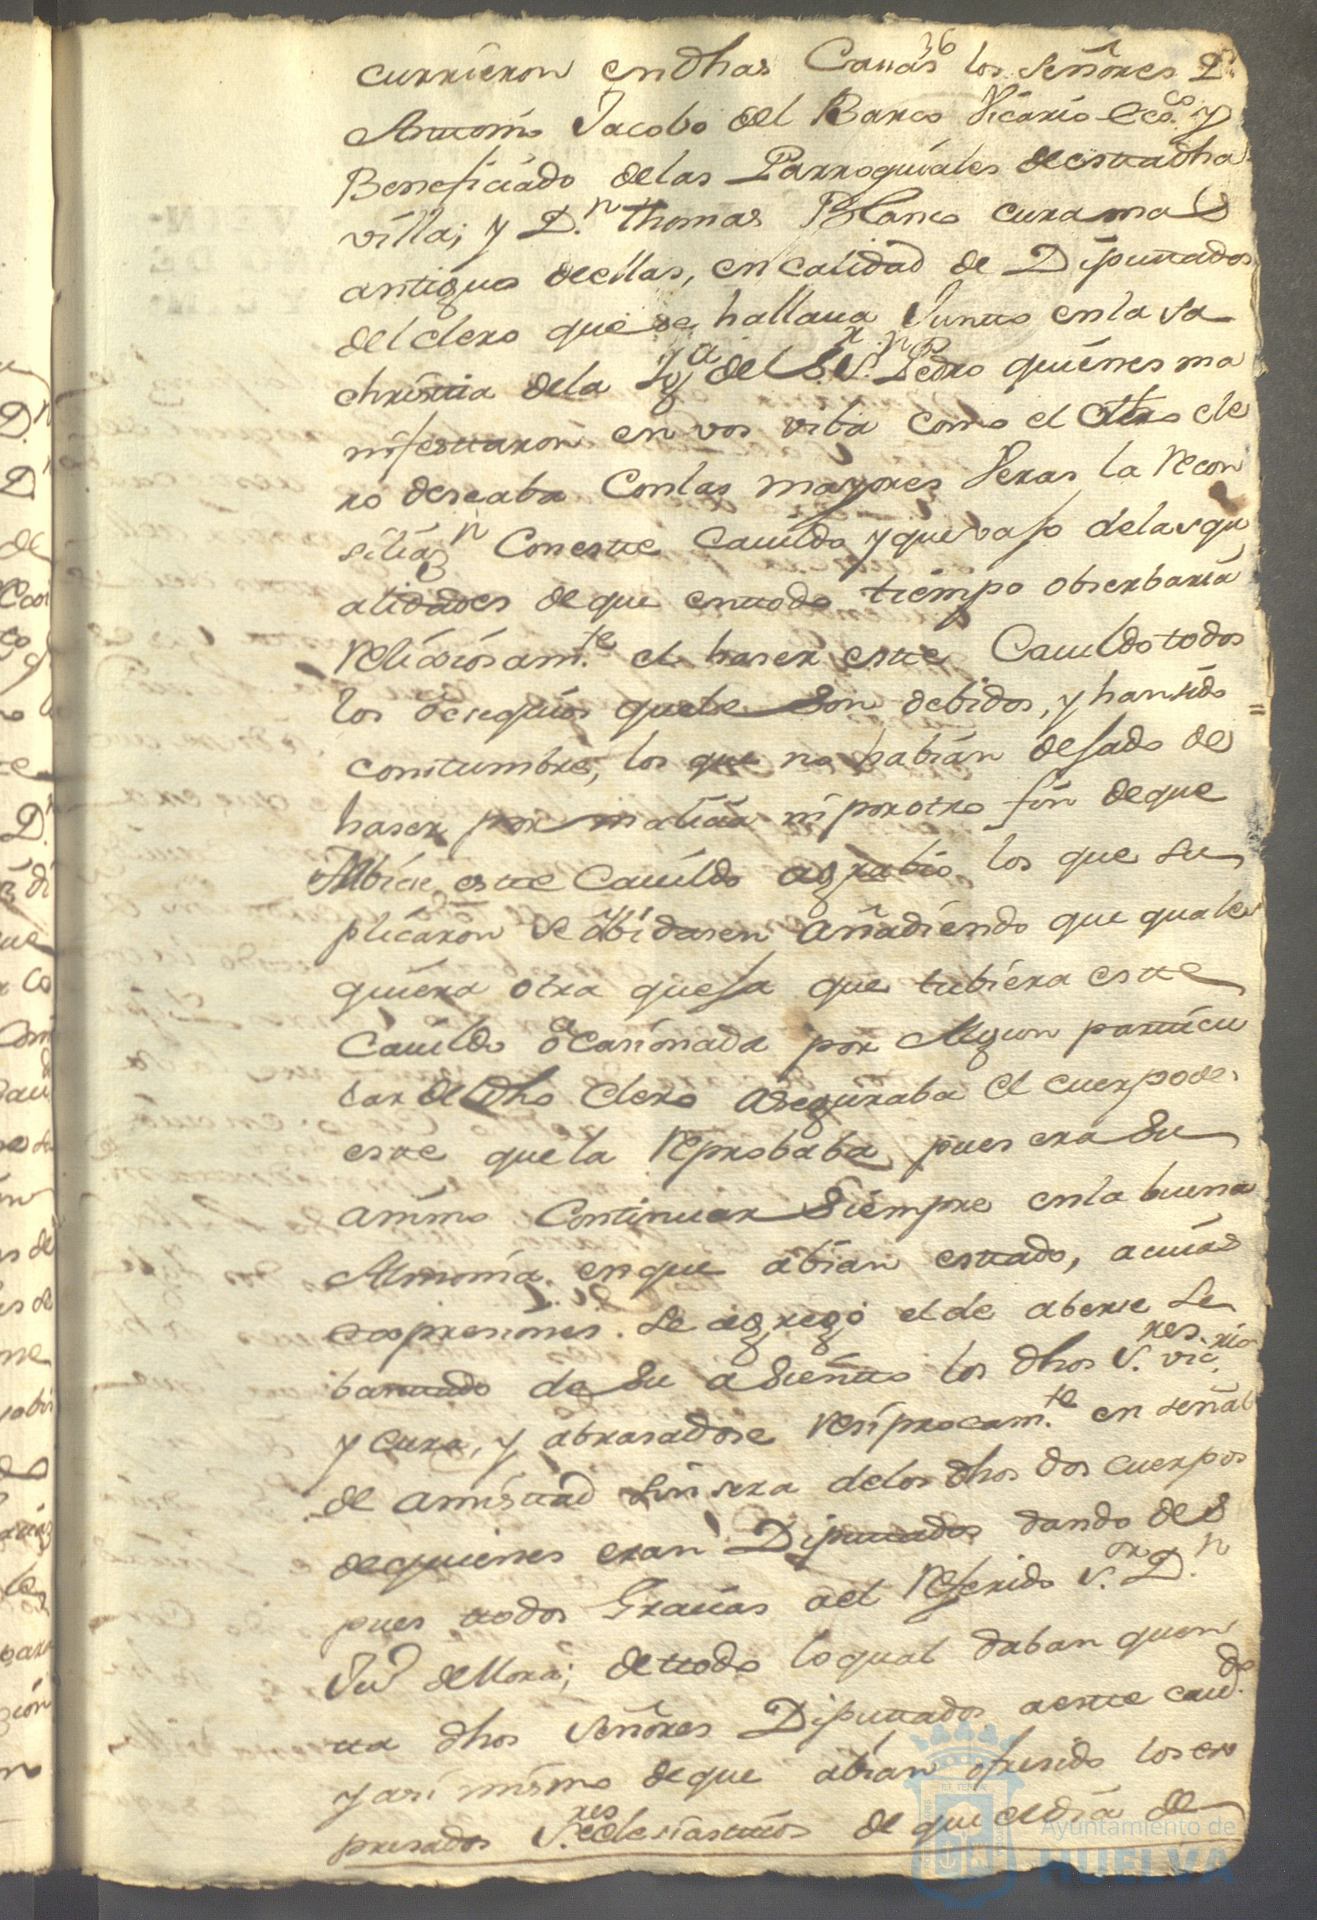 36
currieron en dhas Casas los Señores Dn.
Antonio Jacobo del Barco Vicario ecco. y
Beneficiado delas Parroquiales de esttadha
villa; y D.n thomas Blanco cura mas
antiguo deellas, en calidad de Diputtados
del clero que se hallaua Juntto enla sa
christtia dela Ygª del Sr. S.n Pedro quienes ma
nifesttaron en vos viba como el cittdo cle
ro deseaba Conlas mayores Veras la recon
siliaz.n Conestte Cauildo y que vajo delas qu
alidades de que enttodo tiempo obserbaria
religiosam.te el haser estte Cauildo todos
los obsequios quele Son debidos, y han sido
consttumbre, los que no habian dejado de
haser por malicia ni por otro fin de que
resibiese estte Cauildo agrabio, los que su
plicaron se olbidasen añadiendo que quales
quiera otra queja que tubiera estte
Cauildo ocasionada por Algun partticu
lar de dho Clero aseguraba el cuerpo de
este que la reprobaba, pues era su
animo Continuar Siempre en la buena
Armonia en que abian esttado, a cuias
expresiones. Se agregó el de aberse le
banttado de su asientto los dhos S.res vic.rio
y cura, y abrasadose resiprocam.te en señal
de amisttad sinsera delos dhos dos cuerpos
de quienes eran Diputtados dando des
pues ttodos Gracias ael referido S.or D.n
Ju.º de Mora; de ttodo lo qual daban quen
tta dhos Señores Diputtados a estte caud.do
y asi mismo de que abian ofresido los ex
presados S.res eclesiasticos de que el dia de
Ayuntamiento de
HUELVA